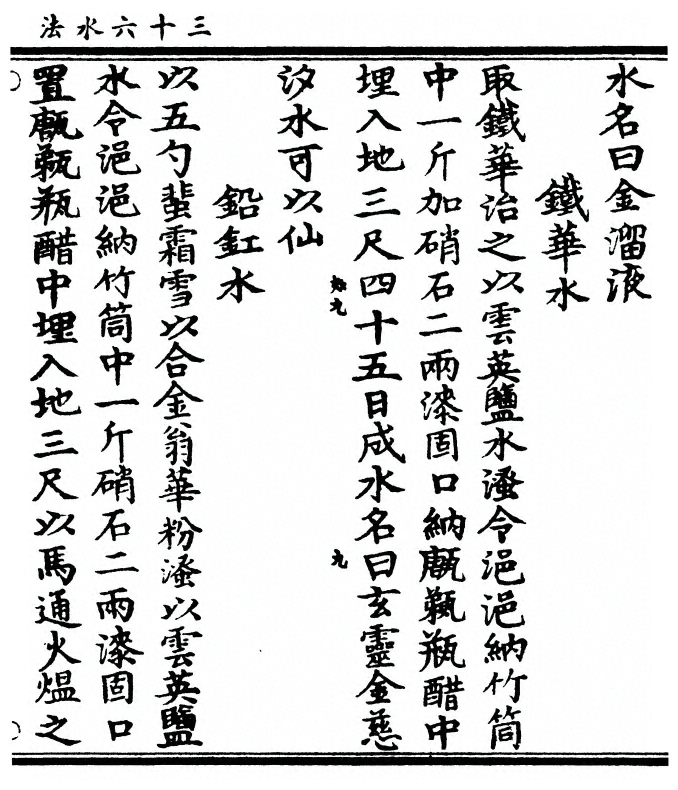 三十六水法
水名曰金溜液
鐵華水
取鐵華治之以雲英鹽水溲令浥浥納竹筒
中一斤加硝石二兩漆固口納甋甄瓶醋中
埋入地三尺四十五日成水名曰玄靈金慈
汐水可以仙
鉛釭水
以五勺蜚霜雪以合金翁華粉溲以雲英鹽
水令浥浥納竹筒中一斤硝石二兩漆固口
置甋甄瓶醋中埋入地三尺以馬通火熅之